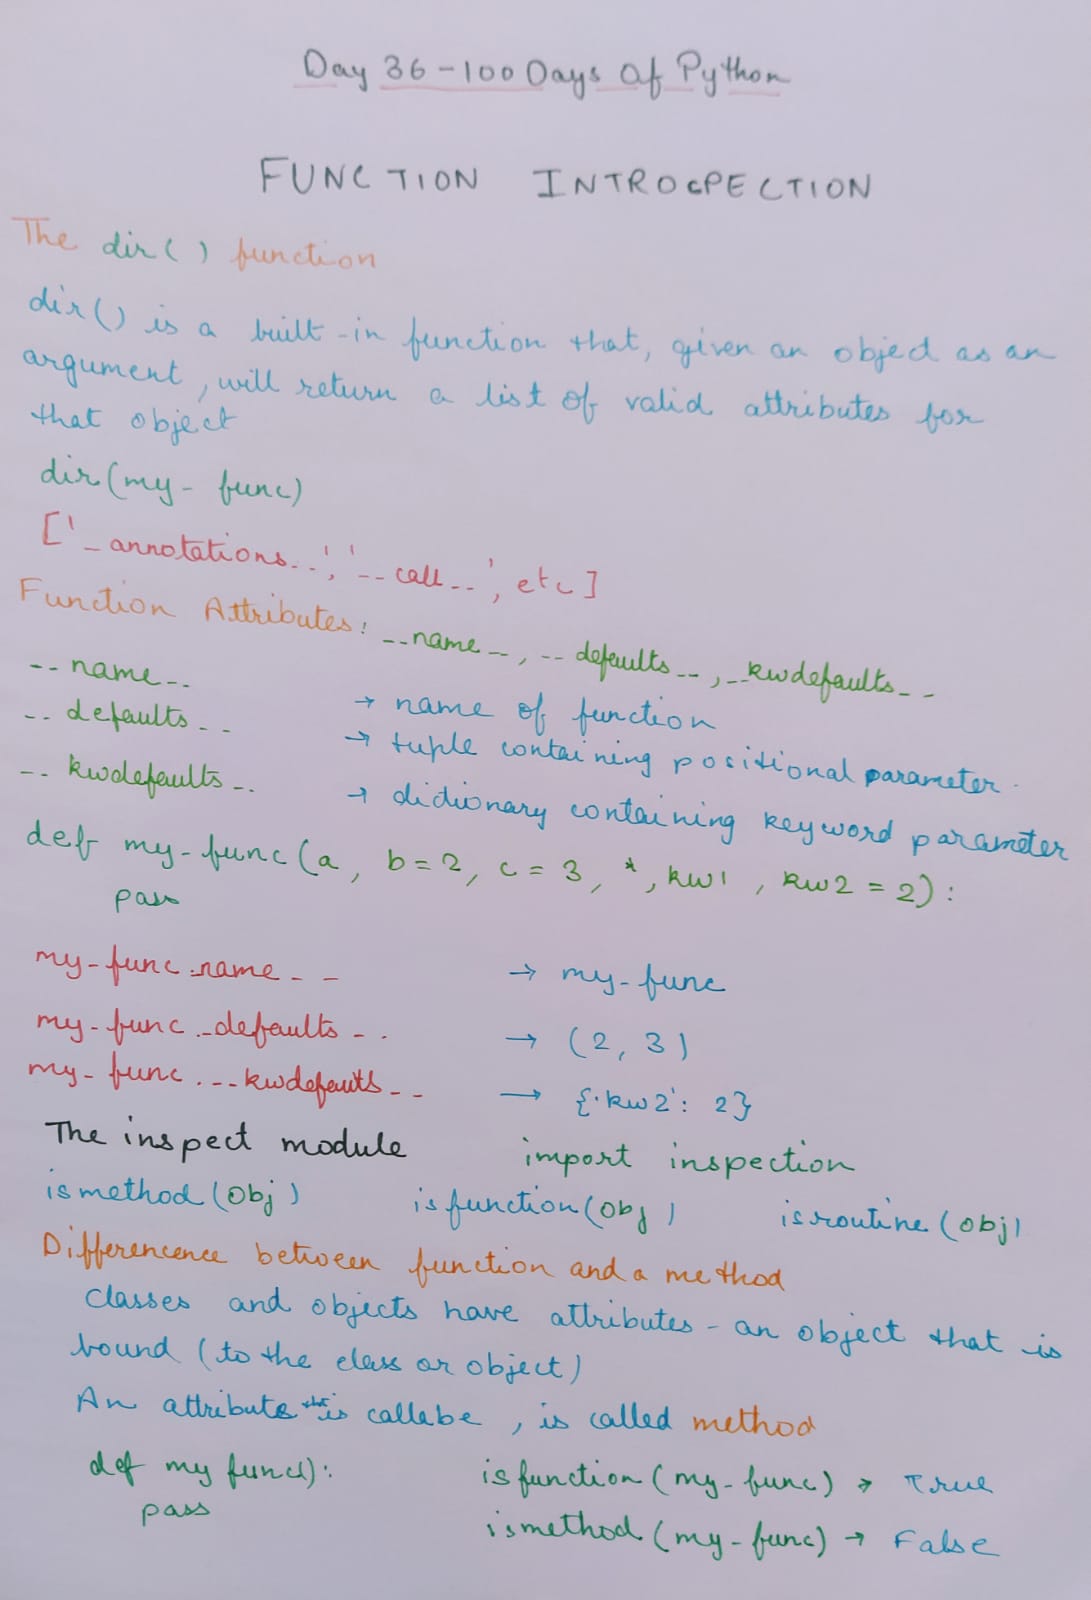 Day 36 - 100 Days Of Python
FUNCTION INTROSPECTION
The dir() function
dir() is a built-in function that, given an object as an
argument, will return a list of valid attributes for
that object
dir(my-func)
['_annotations__', '__call__', etc]
Function Attributes: __name__, __defaults__, __kwdefaults__
__name__ → name of function
__defaults__ → tuple containing positional parameter.
__kwdefaults__ → dictionary containing keyword parameter
def my-func(a, b=2, c=3, *, kw1, kw2=2):
pass
my-func.name__ → my-func
my-func._defaults__ → (2, 3)
my-func.__kwdefaults__ → {'kw2': 2}
The inspect module import inspection
ismethod(obj) isfunction(obj) isroutine(obj)
Differencence between function and a method
classes and objects have attributes - an object that is
bound (to the class or object)
An attribute that is callabe, is called method
def my func(): isfunction(my-func) → True
pass
ismethod(my-func) → False